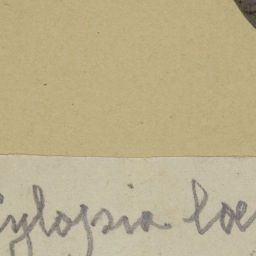 Xylopsia loe